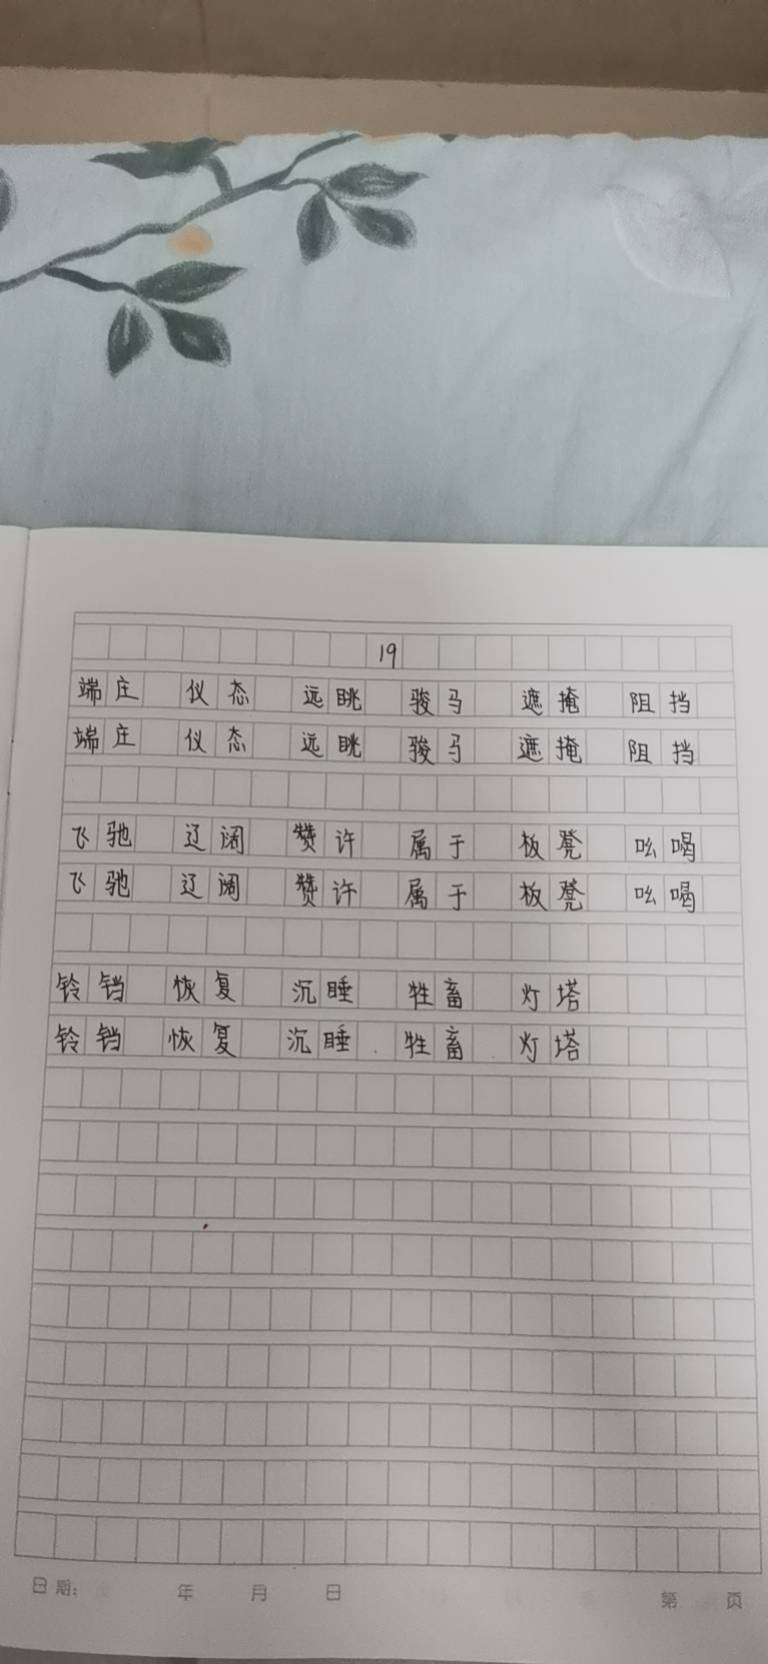 19
端庄 仪态 远眺 骏马 遮掩 阻挡
端庄 仪态 远眺 骏马 遮掩 阻挡
飞驰 辽阔 赞许 属于 板凳 吆喝
飞驰 辽阔 赞许 属于 板凳 吆喝
铃铛 恢复 沉睡 牲畜 灯塔
铃铛 恢复 沉睡 牲畜 灯塔
日期: 年 月 日 第 页